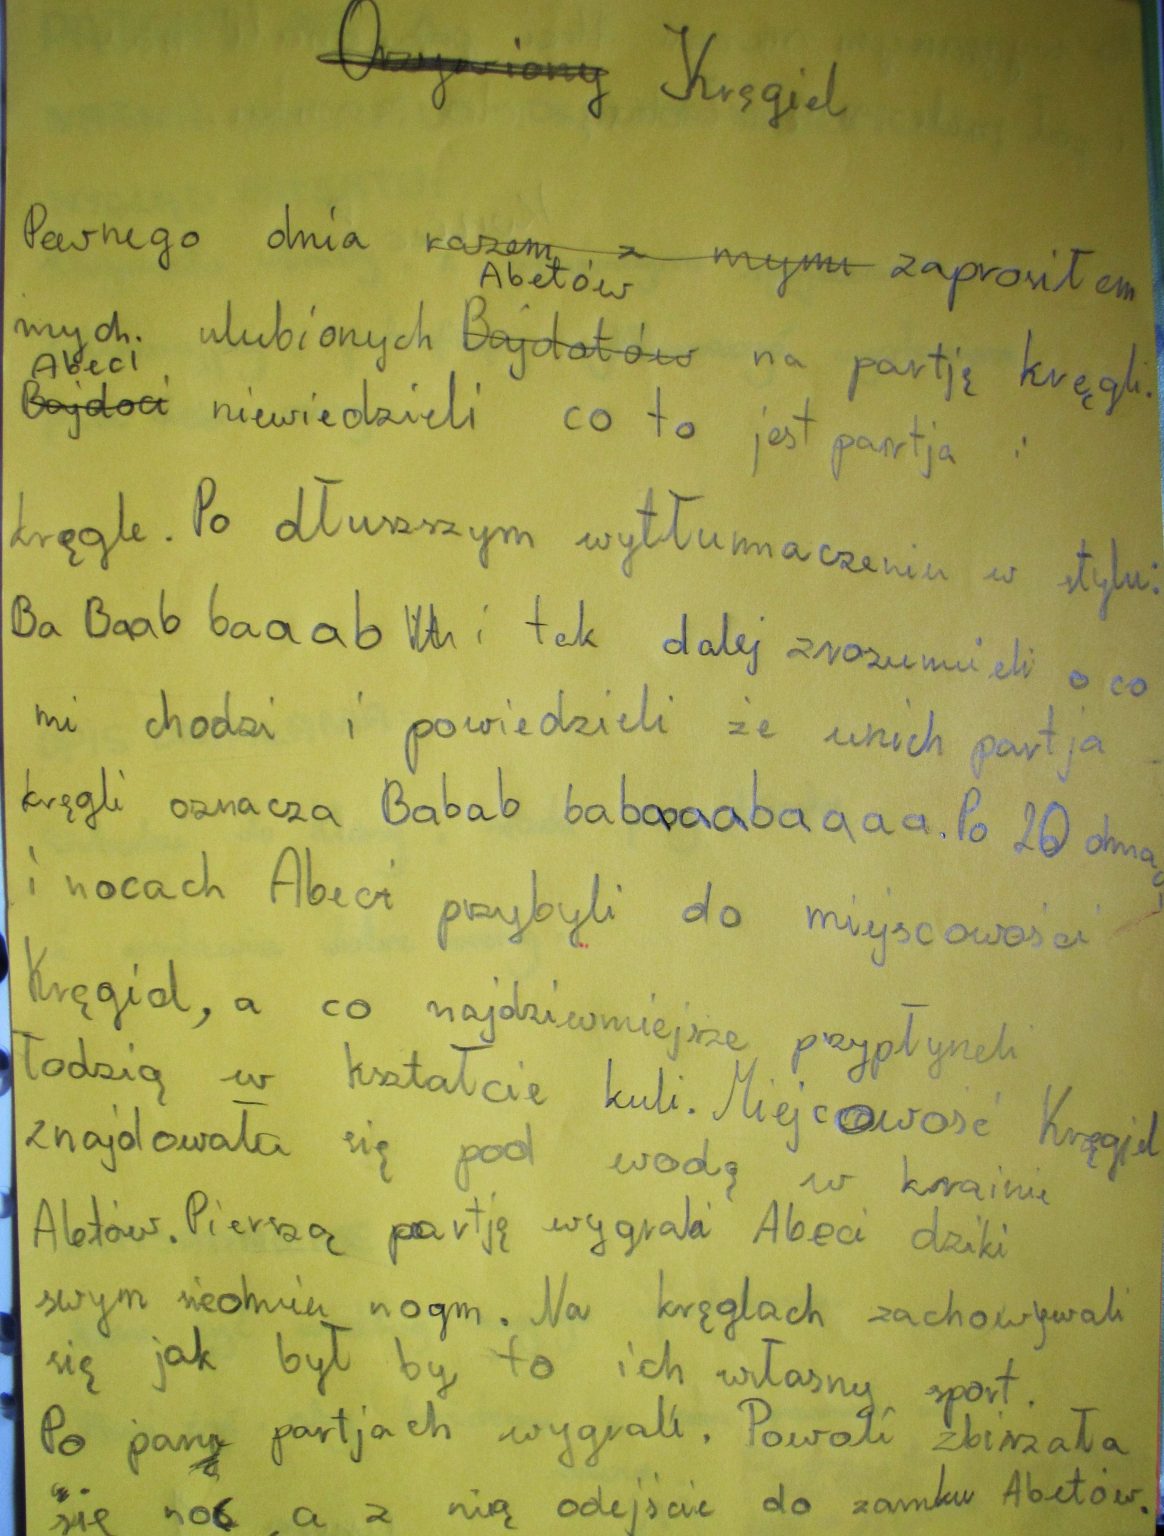 Ożywiony Kręgiel
Pewnego dnia razem z mymi zaprosiłem
Abetów
mych. ulubionych Bajdotów na partję kręgli.
Abeci
Bajdoci niewiedzieli co to jest partja i
kręgle. Po dłuszszym wytłumaczeniu w stylu:
Ba Baab baaab i tak dalej zrozumieli o co
mi chodzi i powiedzieli że unich partja
kręgli oznacza Babab babaaaabaaaa. Po 20 dniach
i nocach Abeci przybyli do miejscowości
Kręgiel, a co najdziwniejsze przypłyneli
łodzią w kształcie kuli. Miejcowość Kręgiel
znajdowała się pod wodą w krainie
Abetów. Pierszą partję wygrali Abeci dziki
swym siedmiu nogm. Na kręglach zachowywali
się jak był by to ich własny sport.
Po parę partjach wygrali. Powoli zbirzała
się noc, a z nią odejście do zamku Abetów.